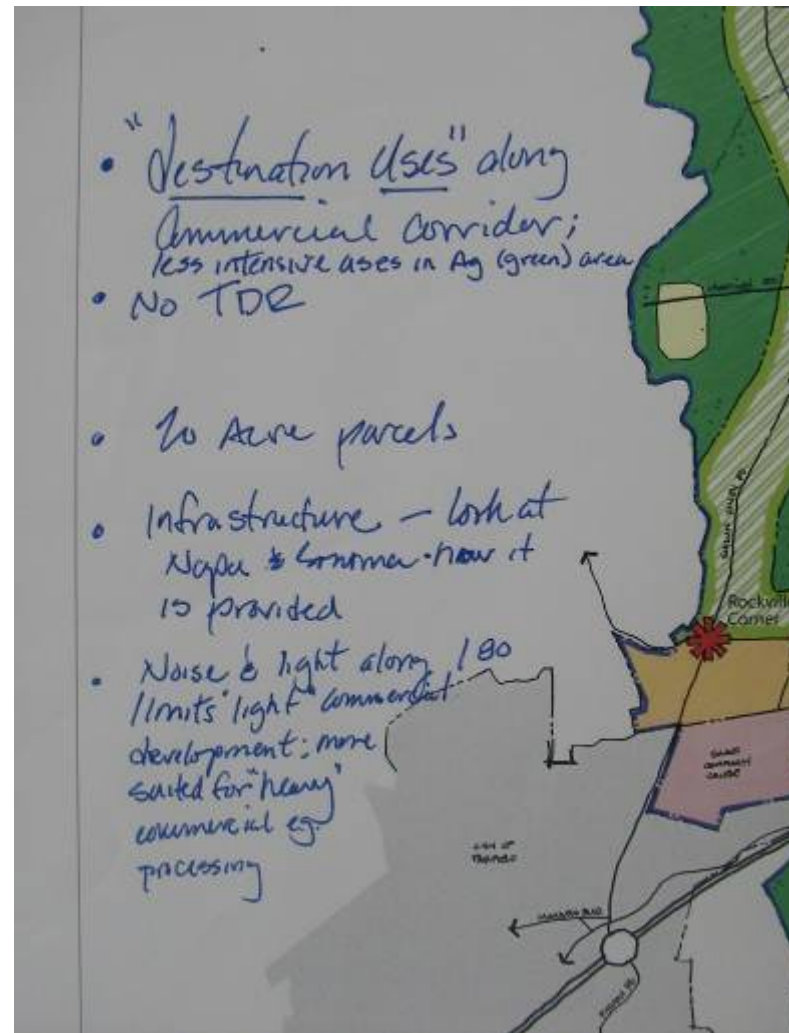 • "destination uses" along
Commercial corridor;
less intensive uses in Ag (green) area
• No TDR
• 20 Acre parcels
• Infrastructure – look at
Napa & Sonoma - how it
is provided
• Noise & light along I 80
limits "light" commercial
development; more
suited for "heavy"
commercial eg.
processing
Rockville
Corner
SOLANO
COMMUNITY
COLLEGE
CITY OF
FAIRFIELD